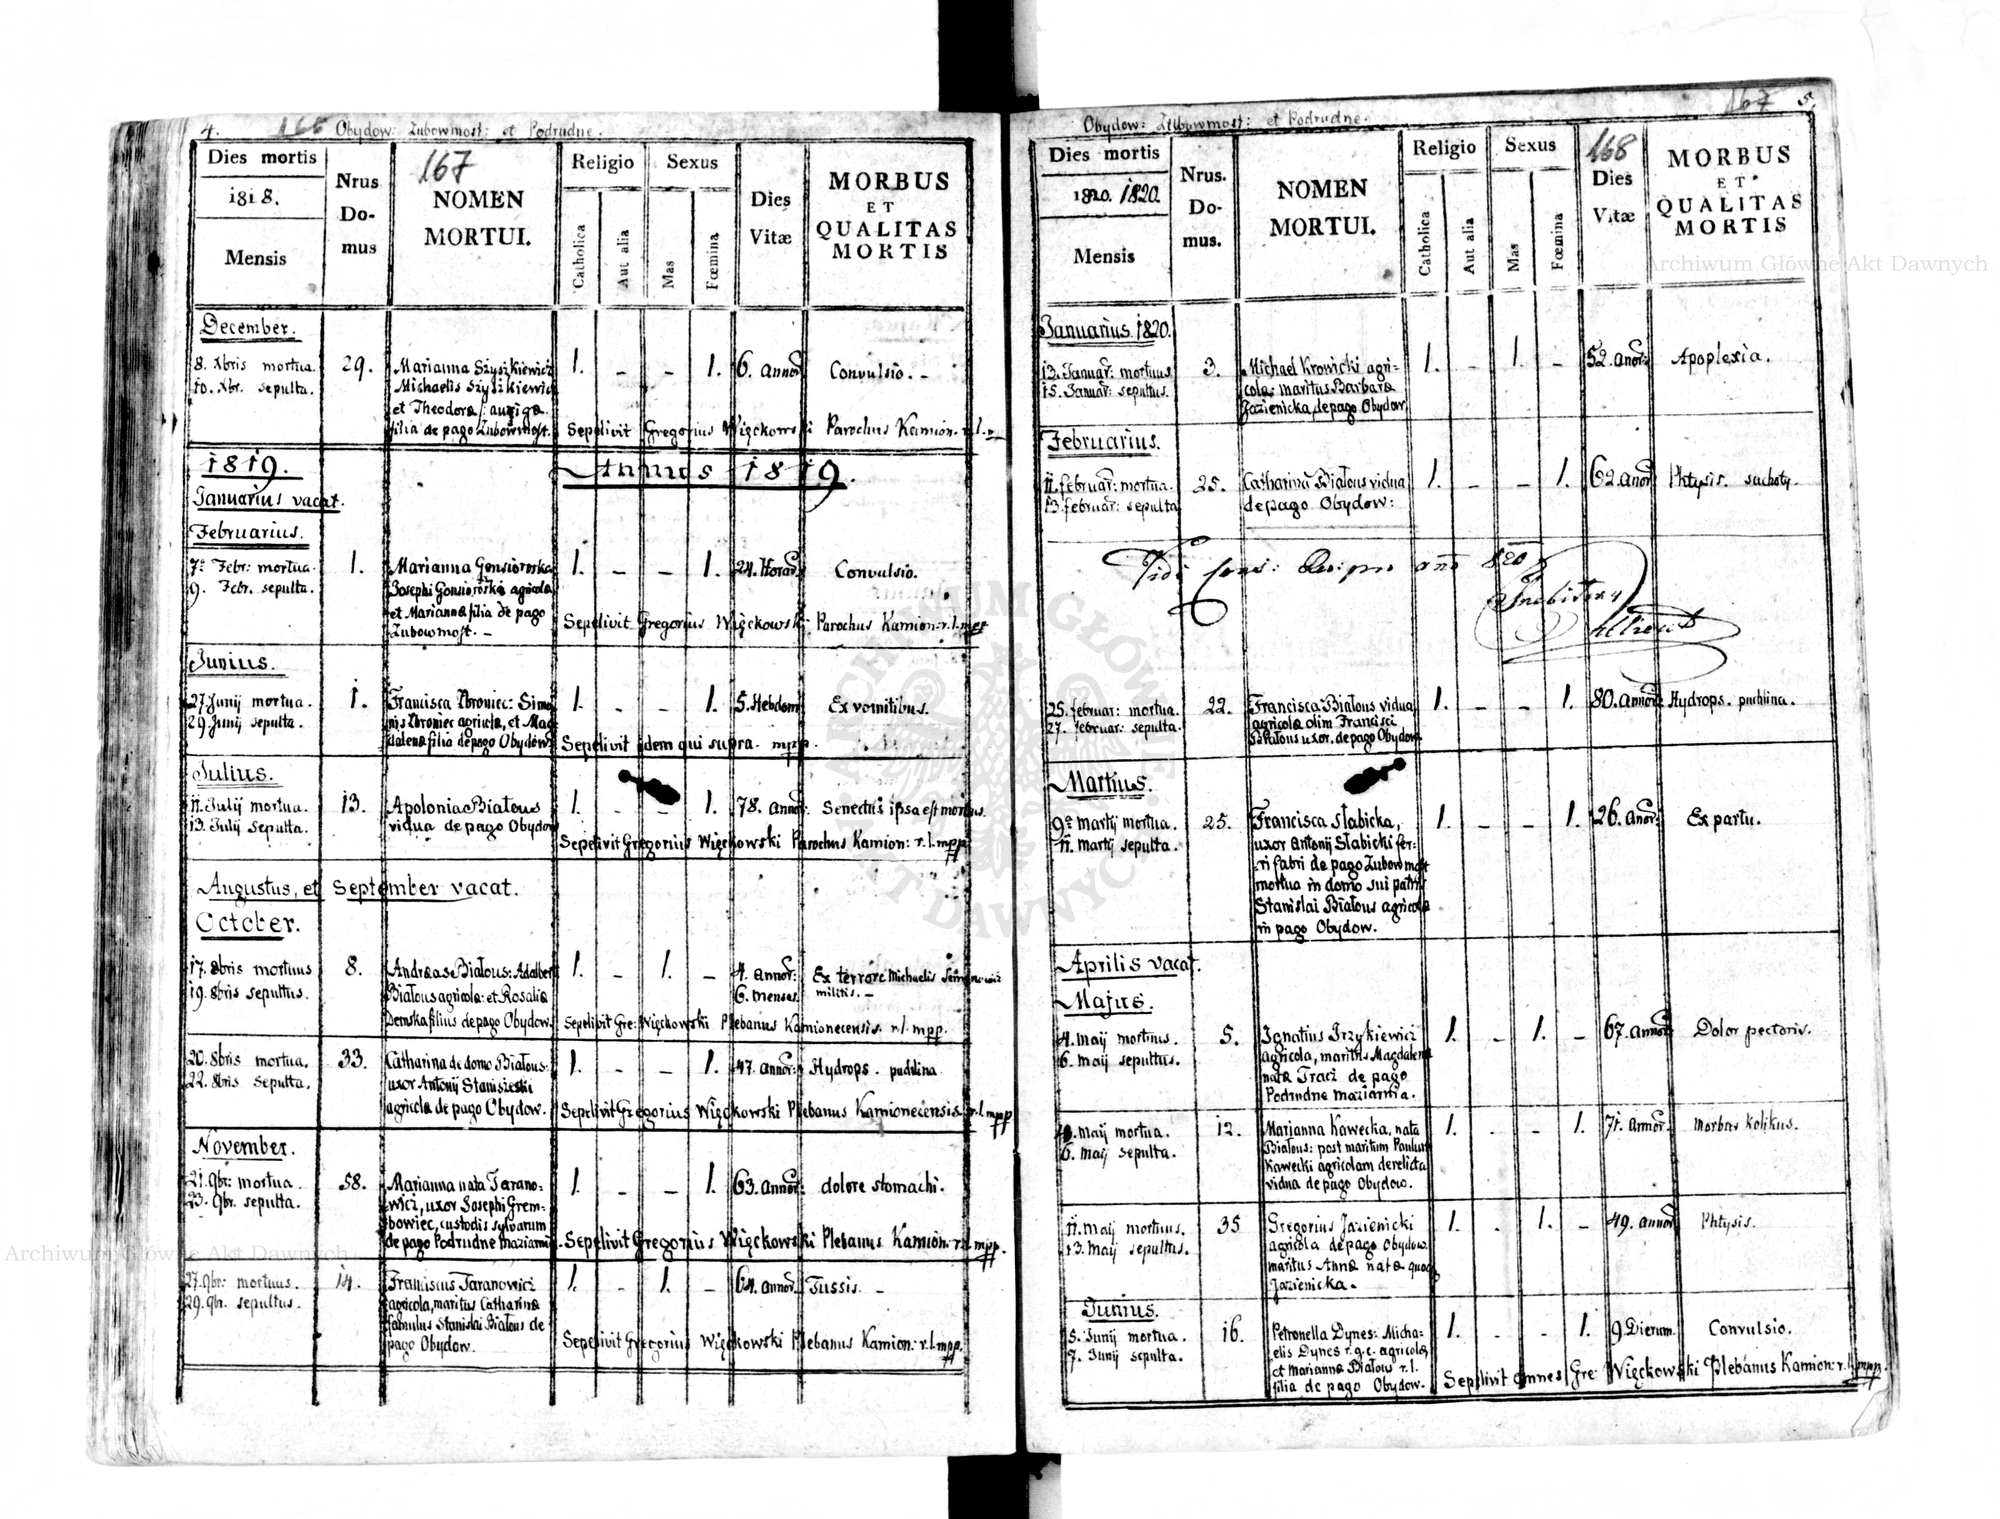 4.
Obydow: Zubowmost: et Podrudne.
Dies mortis
1818.
Mensis
Nrus
Do-
mus
167
NOMEN
MORTUI.
Religio
Catholica
Aut alia
Sexus
Mas
Fœmina
Dies
Vitæ
MORBUS
ET
QUALITAS
MORTIS
December.
8. Xbris mortua. 29. Marianna Szyszkiewicz 1. - - 1. 6. Annor Convulsio. -
10. Xbr. sepulta. Michaelis Szyszkiewicz
et Theodoræ /: aurigæ
filia de pago Zubowmost. Sepelivit Gregorius Więckowski Parochus Kamion. r.l.
1819. Annus 1819.
Januarius vacat.
Februarius.
7ª Febr: mortua. 1. Marianna Gonsioroska 1. - - 1. 24. Horar Convulsio.
9. Febr. sepulta. Josephi Gonsioroski agricolæ
et Mariannæ filia de pago
Zubowmost. - Sepelivit Gregorius Więckowski Parochus Kamion: r.l. mpp
Junius.
27 Junij mortua. 1. Francisca Woroniec: Simo 1. - - 1. 5. Hebdom Ex vomitibus.
29 Junij sepulta. nis Woroniec agricolæ, et Mag
dalenæ filia de pago Obydow. Sepelivit idem qui supra. mpp.
Julius.
11. Julij mortua. 13. Apolonia Białous 1. - - 1. 78. Annor: Senectus ipsa est morbus.
13. Julij sepulta. vidua de pago Obydow
Sepelivit Gregorius Więckowski Parochus Kamion: r.l. mpp
Augustus, et September vacat.
October.
17. 8bris mortuus 8. Andreas Białous: Adalber 1. - 1. - 4. Annor: Ex terrore Michaelis
19. 8bris sepultus. Białous agricolæ: et Rosaliæ 6. menses militis. -
filius de pago Obydow. Sepelivit Gre: Więckowski Plebanus Kamionecensis. r.l. mpp.
20. 8bris mortua. 33. Catharina de domo Białous: 1. - - 1. 47. Annor: Hydrops. puchlina
22. 8bris Sepulta. uxor Antonij Staniszeski
agricolæ de pago Obydow. Sepelivit Gregorius Więckowski Plebanus Kamionecensis. r.l. mpp
November.
21. 9br: mortua. 58. Marianna nata Tarano- 1. - - 1. 63. Annor: dolore stomachi.
23. 9br. sepulta. wicz, uxor Josephi Grem-
bowiec, custodis sylvarum
de pago Podrudne Maziarni Sepelivit Gregorius Więckowski Plebanus Kamion: r.l. mpp.
27. 9br: mortuus. 14. Franciscus Taranowicz 1. - 1. - 64. Annor. Tussis. -
29. 9br. sepultus. agricola, maritus Catharinæ
famulus Stanislai Białous de
pago Obydow. Sepelivit Gregorius Więckowski Plebanus Kamion: r.l. mpp.
167 5.
Obydow: Zubowmost: et Podrudne.
Dies mortis
1820. 1820.
Mensis
Nrus.
Do-
mus.
NOMEN
MORTUI.
Religio
Catholica
Aut alia
Sexus
Mas
Fœmina
168
Dies
Vitæ
MORBUS
ET
QUALITAS
MORTIS
Januarius 1820.
13. Januar: mortuus 3. Michael Krowicki agri- 1. - 1. - 52. Anor: Apoplexia.
15. Januar: sepultus. cola: maritus Barbaræ
Jazienicka, de pago Obydow.
Februarius.
11. februar: mortua. 25. Catharina Białous vidua 1. - - 1. 62. Anor Phtysis. suchoty.
13. februar: sepulta de pago Obydow:
Vidi 820
25. februar: mortua. 22. Francisca Białous vidua 1. - - 1. 80. Annor: Hydrops. puchlina.
27. februar: sepulta. agricolæ olim Francisci
Białous uxor. de pago Obydow
Martius.
9ª martij mortua. 25. Francisca Słabicka, 1. - - 1. 26. Anor: Ex partu.
11. martij sepulta. uxor Antonij Słabicki fer-
ri fabri de pago Zubowmost
mortua in domo sui patris
Stanislai Białous agricolæ
in pago Obydow.
Aprilis vacat.
Majus.
4. maij mortuus. 5. Ignatius Irzykiewicz 1. - 1. - 67. Annor Dolor pectoris.
6. maij sepultus. agricola, maritus Magdalenæ
natæ Tracz de pago
Podrudne maziarnia.
4. maij mortua. 12. Marianna Kawecka, nata 1. - - 1. 71. Annor. Morbus kolikus.
6. maij sepulta. Białous: post maritum Paulum
Kawecki agricolam derelicta
vidua de pago Obydow.
11. maij mortuus. 35 Gregorius Jazienicki 1. - 1. - 49. Annor Phtysis.
13. maij sepultus. agricola de pago Obydow
maritus Annæ natæ quoq
Jazienicka.
Junius.
5. Junij mortua. 16. Petronella Dynes: Micha- 1. - - 1. 9. Dierum. Convulsio.
7. Junij sepulta. elis Dynes r.g.c. agricolæ,
et Mariannæ Białous r.l.
filia de pago Obydow. Sepelivit omnes Gre: Więckowski Plebanus Kamion: r.l. mpp.
Archiwum Główne Akt Dawnych
Archiwum Główne Akt Dawnych
ARCHIWUM GŁÓWNE AKT DAWNYCH